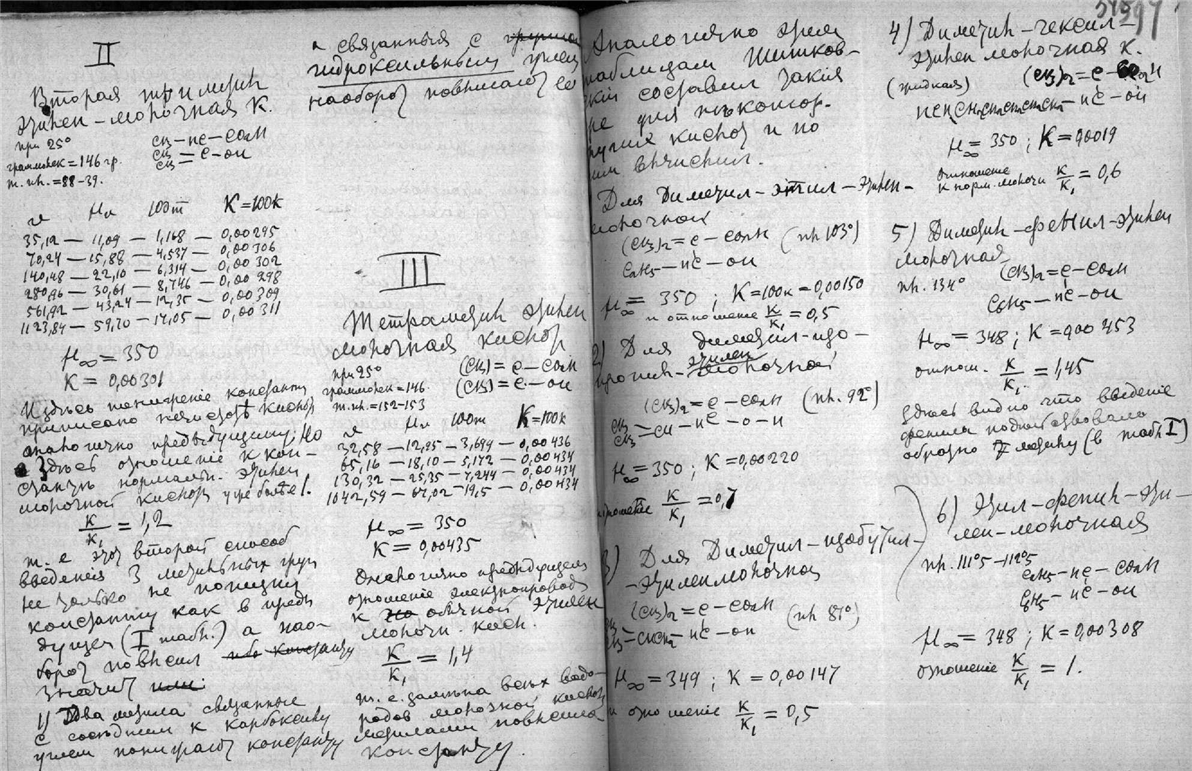 II
Вторая триметил
этилен-молочная К.
при 25°
граммолек = 146 гр.
т. пл. = 88-39.
СН₃ - НС - СООН
СН₃ = С - ОН
СН₃
v Mv 100m K=100k
35,12 — 11,09 — 1,168 — 0,00295
70,24 — 15,88 — 4,537 — 0,00306
140,48 — 22,10 — 6,314 — 0,00302
280,96 — 30,61 — 8,746 — 0,00298
561,92 — 43,24 — 12,35 — 0,00309
1123,84 — 59,70 — 17,05 — 0,00311
μ∞ = 350
K = 0,00301
Здесь понижение константы
аналогично предыдущему. Но
здесь отношение к кон-
станте нормальн. этилен
молочной кислоты уже более 1.
K/K₁ = 1,2
т. е. этот второй способ
введения 3 метильных групп
не только не понизил
константу как в преды
дущем (I табл.) а нао-
борот повысил
значит
1) Два метила связанные
с соседним к карбоксилу
углем понижают константу
а связанные с
гидроксильным углем
наоборот повышают ее
III
Тетраметил этилен
молочная кислота
при 25°
граммолек = 146
т. пл. = 152-153
(СН₃)₂ = С - СООН
(СН₃)₂ = С - ОН
v Mv 100m K=100k
32,58 — 12,95 — 3,699 — 0,00436
65,16 — 18,10 — 5,172 — 0,00434
130,32 — 25,35 — 7,244 — 0,00434
1042,59 — 67,02 — 19,5 — 0,00434
μ∞ = 350
K = 0,00435
Аналогично предыдущему
отношение электропровод
к обычной этилен
молочн. кисл.
K/K₁ = 1,4
т. е. замена всех водо-
родов молочной кислоты
метилами повысила
константу.
Аналогично этим
таблицам Шишков-
ский составил такия
же для нижеслед-
ующих кислот и по
ним вычислил.
Для Диметил-этил-этилен-
молочной
(СН₃)₂ = С - СООН (пл 103°)
С₂Н₅ - НС - ОН
μ∞ = 350 ; K = 100к = 0,00150
и отношение K/K₁ = 0,5
2) Для диметил-изо-
пропил-этилен молочной
(СН₃)₂ = С - СООН (пл. 92°)
СН₃
СН₃ - СН - НС - О - Н
μ∞ = 350 ; K = 0,00220
отношение K/K₁ = 0,7
3) Для Диметил-изобутил-
-этиленмолочной
(СН₃)₂ = С - СООН (пл 81°)
- СНСН₂ - НС - ОН
μ∞ = 349 ; K = 0,00147
и отношение K/K₁ = 0,5
297
4) Диметил-гексил-
этилен молочная К.
(жидкая)
μ∞ = 350 ; K = 0,0019
отношение
к норм. молочн K/K₁ = 0,6
5) Диметил-фенил-этилен
молочная
пл. 134° (СН₃)₂ = С - СООН
С₆Н₅ - НС - ОН
μ∞ = 348 ; K = 0,00453
отнош. K/K₁ = 1,45
Здесь видно что введение
фенила подействовало
обратно метилу (в табл. I)
6) Этил-фенил-эти-
лен-молочная
пл. 111°5 - 112°5
С₂Н₅ - НС - СООН
С₆Н₅ - НС - ОН
μ∞ = 348 ; K = 0,00308
отношение K/K₁ = 1.